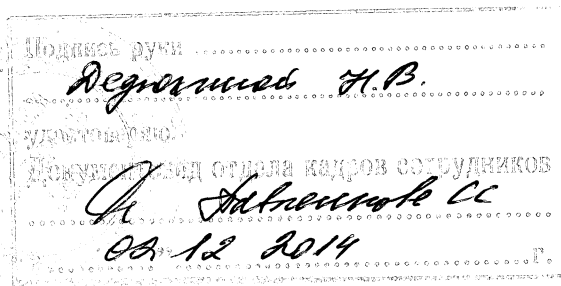 Подпись руки
Дедюхиной Н.В.
удостоверяю.
Документовед отдела кадров сотрудников
СС
02 12 2014 г.